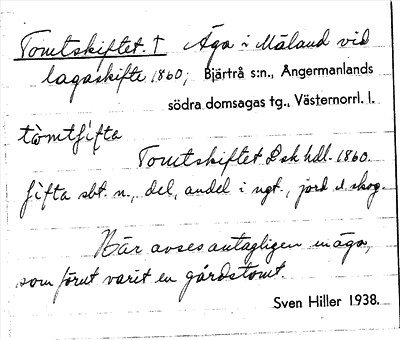 Tomtskiftet. † Äga i Måland vid
lagaskifte 1860; Bjärtrå s:n., Ångermanlands
södra domsagas tg., Västernorrl. l.
tòmtfifta
Tomtskiftet Dsk hdl. 1860.
fifta sbt. n., del, andel i ngt., jord el. skog.
Här avses antagligen en äga,
som förut varit en gårdstomt.
Sven Hiller 1938.